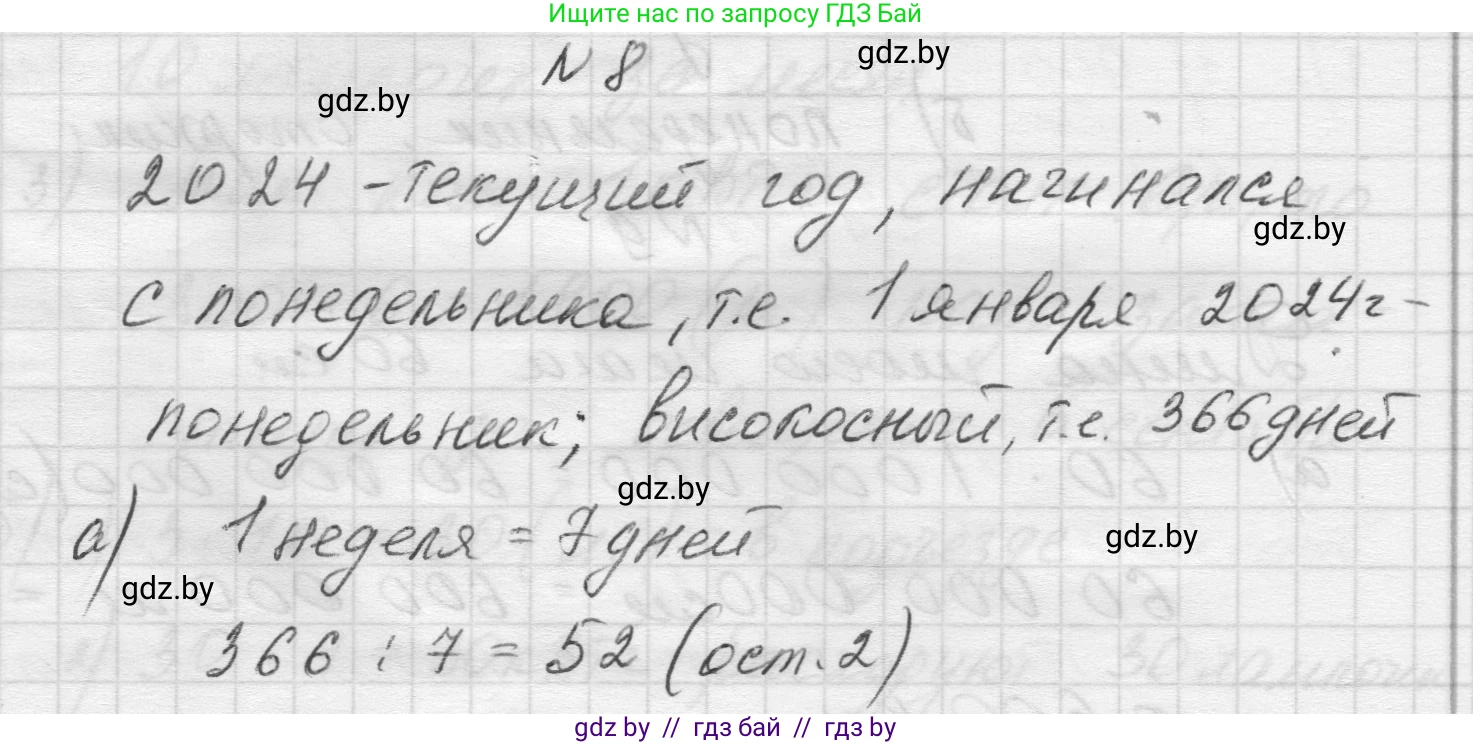 Ищите нас по запросу ГДЗ Бай
N 8
gdz.by
gdz.by
2024 - текущий год, начинался
gdz.by
с понедельника, т.е. 1 января 2024г -
понедельник; високосный, т.е. 366 дней
gdz.by
а) 1 неделя = 7 дней
gdz.by
gdz.by
366 : 7 = 52 (ост. 2)
gdz.by // гдз бай // гдз by